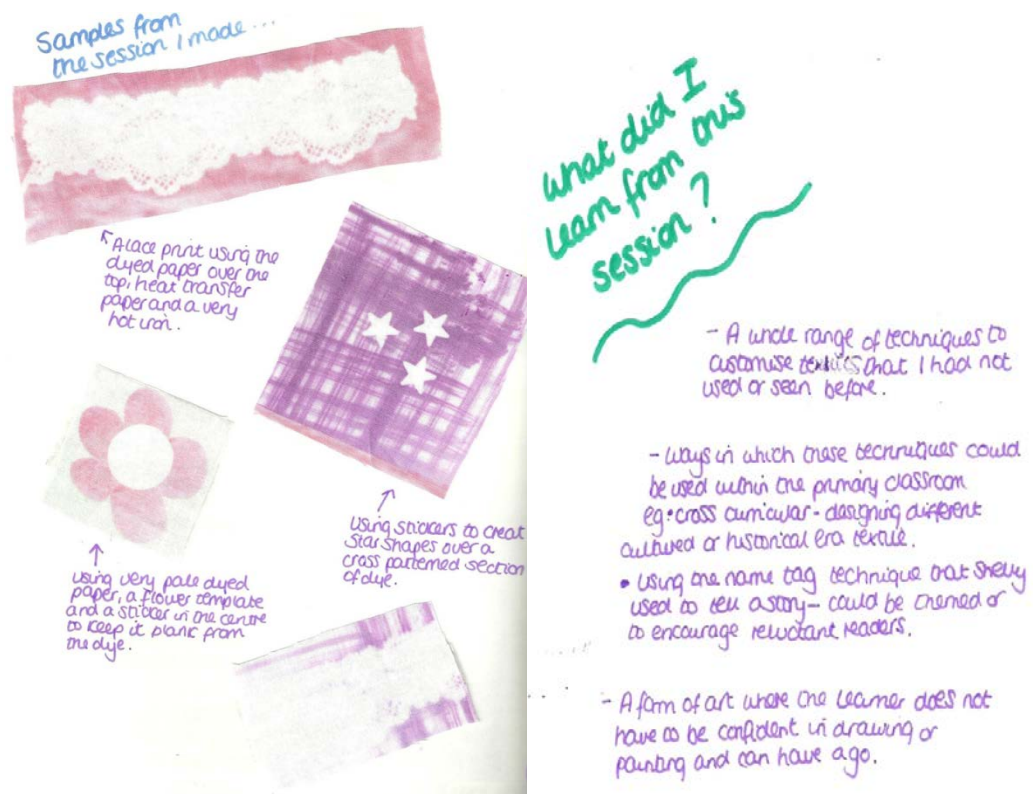 Samples from
the session I made...
A lace print using the
dyed paper over the
top, heat transfer
paper and a very
hot iron.
using stickers to creat
star shapes over a
cross patterned section
of dye.
using very pale dyed
paper, a flower template
and a sticker in the centre
to keep it blank from
the dye.
what did I
learn from this
session?
- A whole range of techniques to
customise textiles that I had not
used or seen before.
- ways in which these techniques could
be used within the primary classroom
eg • cross curricular - designing different
cultured or historical era textile.
• using the name tag technique that Shelly
used to tell a story - could be themed or
to encourage reluctant readers.
- A form of art where the learner does not
have to be confident in drawing or
painting and can have a go.